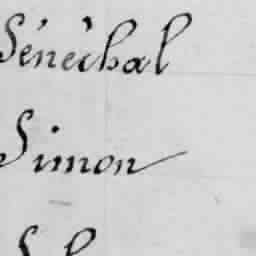 Sénéchal
Simon